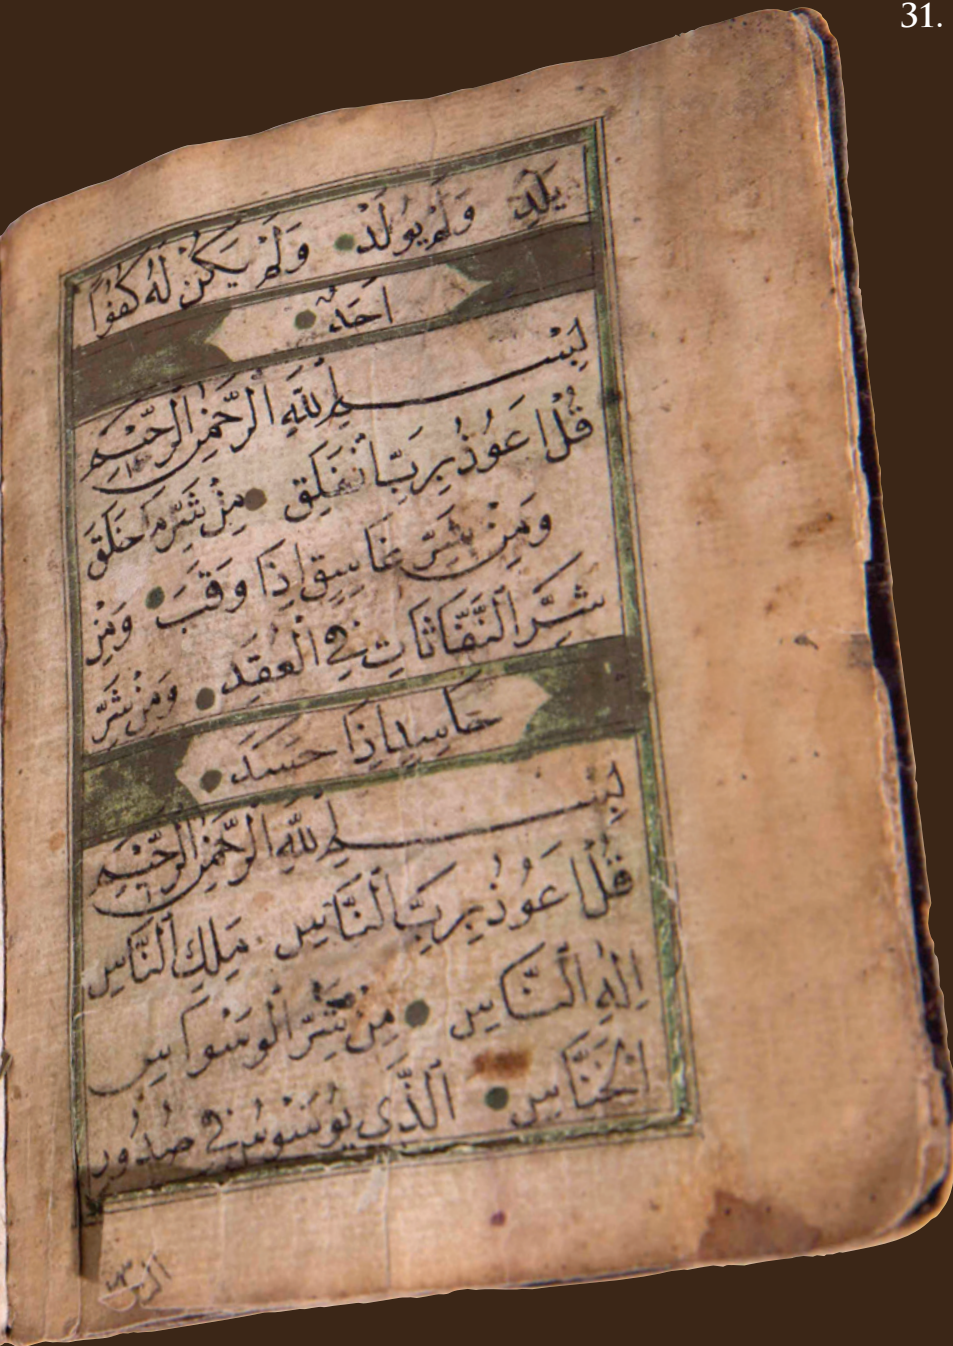 31.
يَلِدْ وَلَمْ يُولَدْ وَلَمْ يَكُنْ لَهُ كُفُوًا
اَحَدٌ
بِسْمِ اللّٰهِ الرَّحْمٰنِ الرَّحِيْمِ
قُلْ اَعُوْذُ بِرَبِّ الْفَلَقِ مِنْ شَرِّ مَا خَلَقَ
وَمِنْ شَرِّ غَاسِقٍ اِذَا وَقَبَ وَمِنْ
شَرِّ النَّفَّاثَاتِ فِي الْعُقَدِ وَمِنْ شَرِّ
حَاسِدٍ اِذَا حَسَدَ
بِسْمِ اللّٰهِ الرَّحْمٰنِ الرَّحِيْمِ
قُلْ اَعُوْذُ بِرَبِّ النَّاسِ مَلِكِ النَّاسِ
اِلٰهِ النَّاسِ مِنْ شَرِّ الْوَسْوَاسِ
الْخَنَّاسِ اَلَّذِي يُوَسْوِسُ فِي صُدُورِ